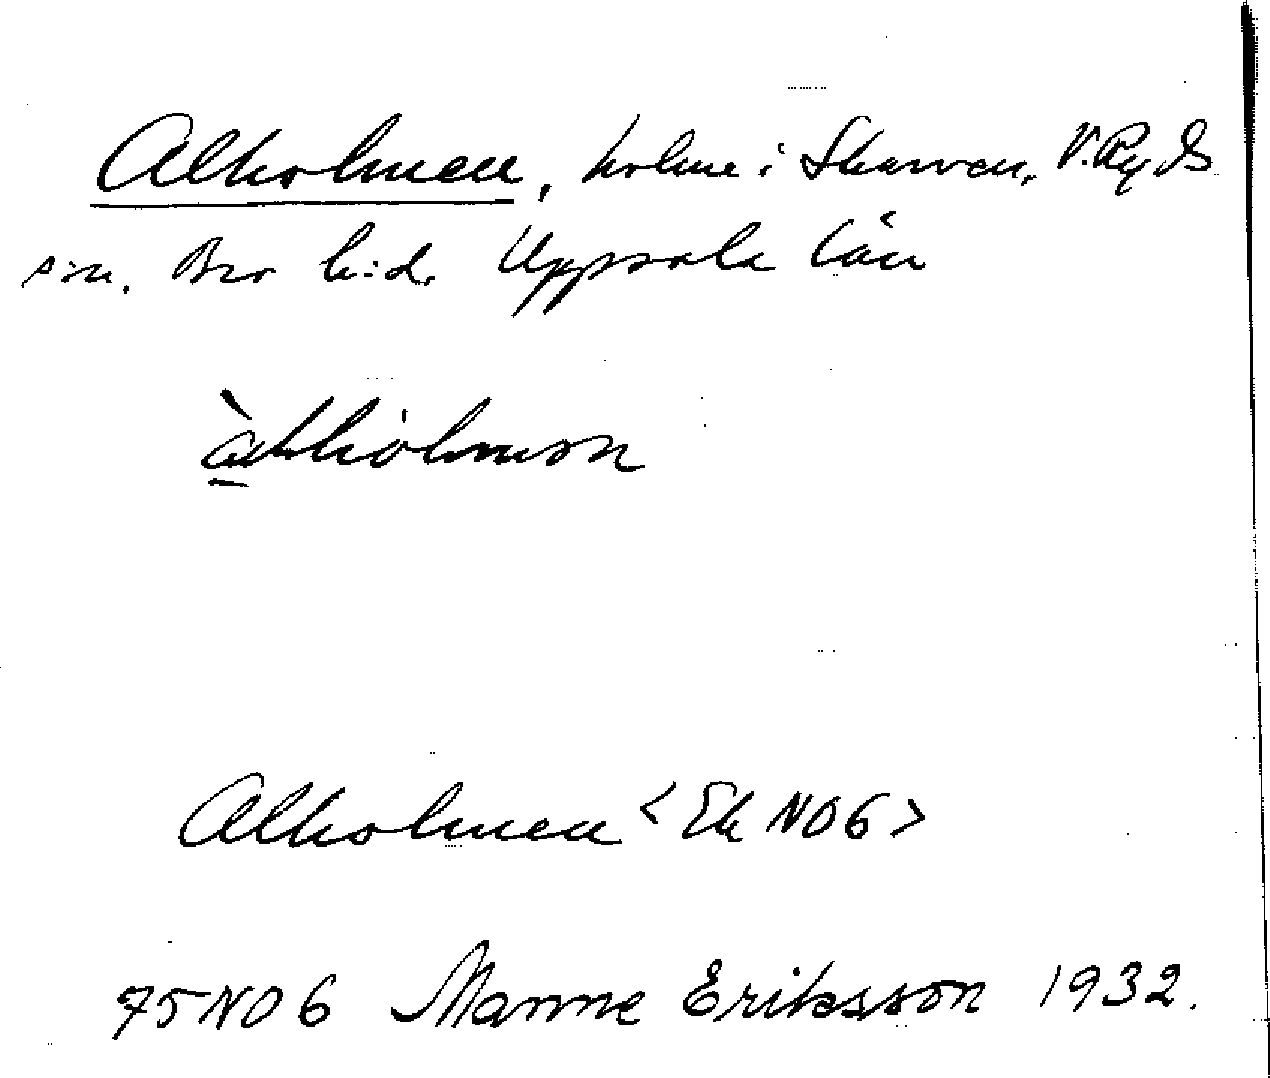 Alholmen, holme i Skarven, V. Ryds
sn. Bro hd. Uppsala län
àlhólmən
Alholmen < Ek NO6 >
75NO6 Manne Eriksson 1932.